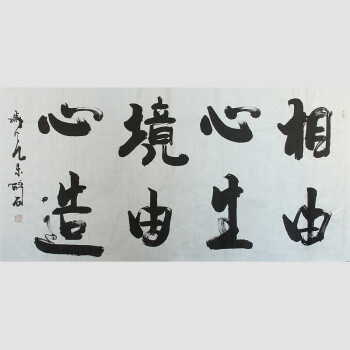 相由
心生
境由
心造